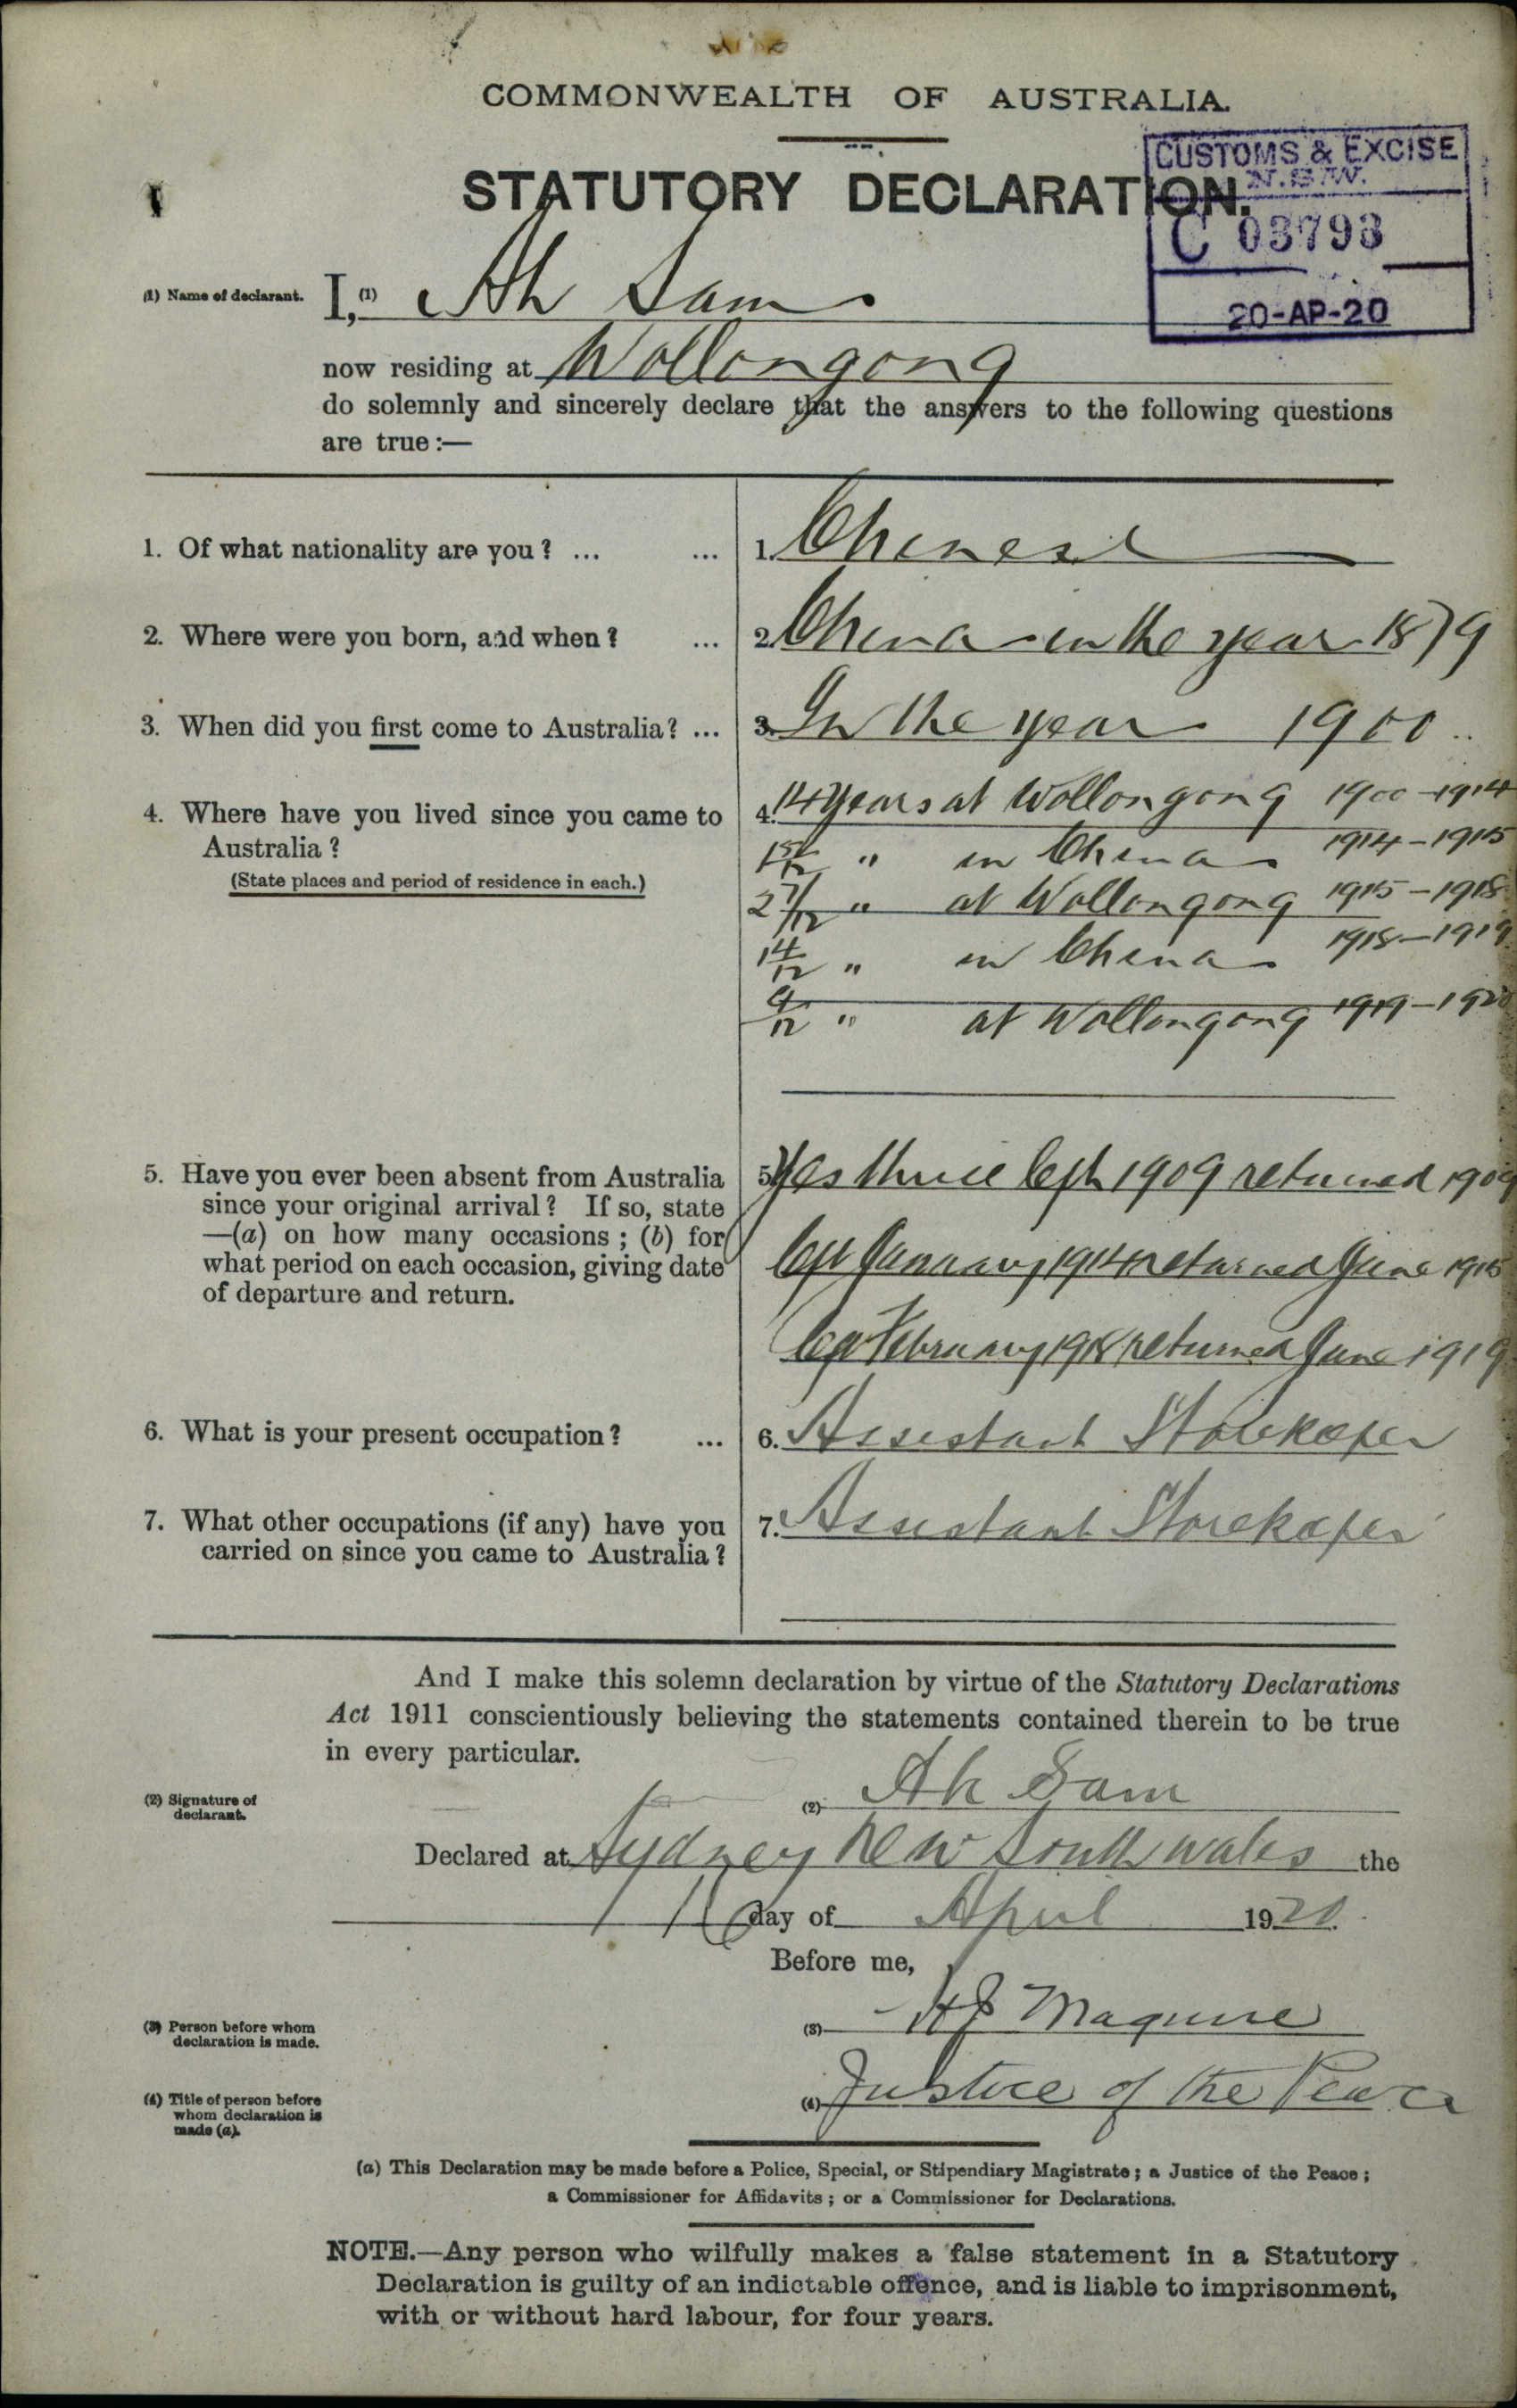 COMMONWEALTH OF AUSTRALIA.
STATUTORY DECLARATION.
CUSTOMS & EXCISE
N.S.W.
C 03793
20-AP-20
(1) Name of declarant. I, (1) Ah Sam
now residing at Wollongong
do solemnly and sincerely declare that the answers to the following questions
are true:—
1. Of what nationality are you? ... ... 1. Chinese
2. Where were you born, and when? ... 2. China in the year 1879
3. When did you first come to Australia? ... 3. In the year 1900
4. Where have you lived since you came to 4. 14 years at Wollongong 1900-1914
Australia? 1 5/12 " in China 1914-1915
(State places and period of residence in each.) 2 7/12 " at Wollongong 1915-1918
1 4/12 " in China 1918-1919
/12 " at Wollongong 1919-1920
5. Have you ever been absent from Australia 5. Yes thrice left 1909 returned 1909
since your original arrival? If so, state
—(a) on how many occasions; (b) for
what period on each occasion, giving date left January 1914 returned June 1915
of departure and return.
left February 1918 returned June 1919
6. What is your present occupation? ... 6. Assistant Storekeeper
7. What other occupations (if any) have you 7. Assistant Storekeeper
carried on since you came to Australia?
And I make this solemn declaration by virtue of the Statutory Declarations
Act 1911 conscientiously believing the statements contained therein to be true
in every particular.
(2) Signature of
declarant.
(2) Ah Sam
Declared at Sydney New South Wales the
day of April 1920
Before me,
(3) Person before whom
declaration is made.
(3) HJ Maguire
(4) Title of person before
whom declaration is
made (a).
(4) Justice of the Peace
(a) This Declaration may be made before a Police, Special, or Stipendiary Magistrate; a Justice of the Peace;
a Commissioner for Affidavits; or a Commissioner for Declarations.
NOTE.—Any person who wilfully makes a false statement in a Statutory
Declaration is guilty of an indictable offence, and is liable to imprisonment,
with or without hard labour, for four years.